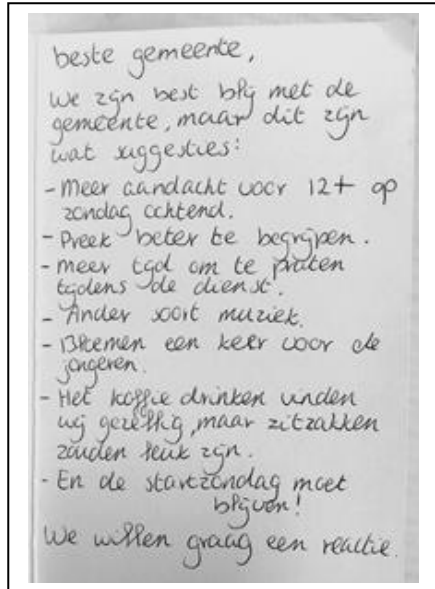 beste gemeente,
we zijn best blij met de
gemeente, maar dit zijn
wat suggesties:
- Meer aandacht voor 12+ op
zondag ochtend.
- Preek beter te begrijpen.
- meer tijd om te praten
tijdens de dienst.
- Ander soort muziek.
- Bloemen een keer voor de
jongeren.
- Het koffie drinken vinden
wij gezellig, maar zitzakken
zouden leuk zijn.
- En de startzondag moet
blijven!
We willen graag een reactie.